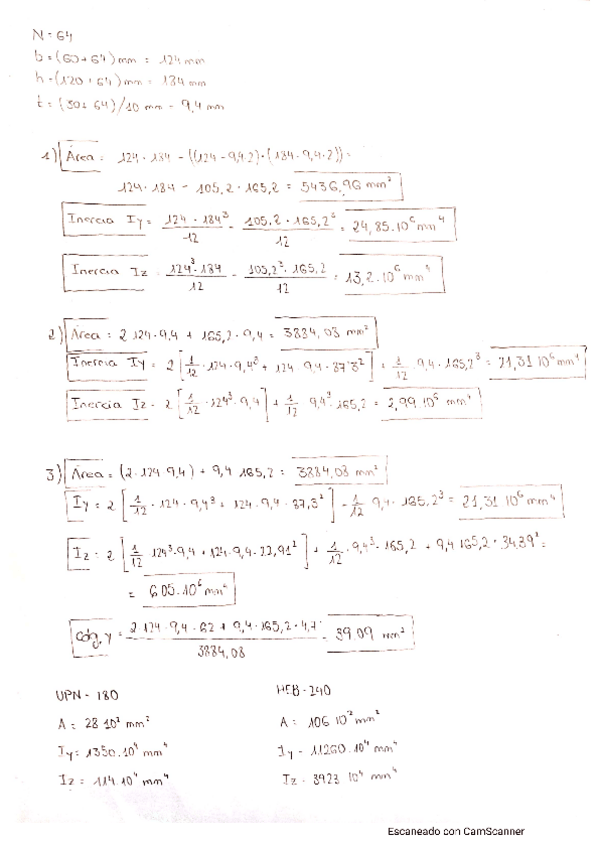 N = 64
b = (60+64) mm = 124 mm
h = (120+64) mm = 184 mm
t = (30+64)/10 mm = 9,4 mm
1) Área = 124·184 - ((124-9,4·2)·(184-9,4·2)) =
124·184 - 105,2·165,2 = 5436,96 mm²
Inercia Iy = 124·184³/12 - 105,2·165,2³/12 = 24,85·10⁶ mm⁴
Inercia Iz = 124³·184/12 - 105,2³·165,2/12 = 13,2·10⁶ mm⁴
2) Área = 2·124·9,4 + 165,2·9,4 = 3884,08 mm²
Inercia Iy = 2[1/12·124·9,4³ + 124·9,4·87,3²] + 1/12·9,4·165,2³ = 21,31·10⁶ mm⁴
Inercia Iz = 2[1/12·124³·9,4] + 1/12·9,4³·165,2 = 2,99·10⁶ mm⁴
3) Área = (2·124·9,4) + 9,4·165,2 = 3884,08 mm²
Iy = 2[1/12·124·9,4³ + 124·9,4·87,3²] + 1/12·9,4·165,2³ = 21,31·10⁶ mm⁴
Iz = 2[1/12·124³·9,4 + 124·9,4·22,91²] + 1/12·9,4³·165,2 + 9,4·165,2·34,39² =
= 6,05·10⁶ mm⁴
Cdg, y = 2·124·9,4·62 + 9,4·165,2·4,7/3884,08 = 39,09 mm²
UPN - 180
HEB - 240
A = 28·10² mm²
A = 106·10² mm²
Iy = 1350·10⁴ mm⁴
Iy = 11260·10⁴ mm⁴
Iz = 114·10⁴ mm⁴
Iz = 3923·10⁴ mm⁴
Escaneado con CamScanner